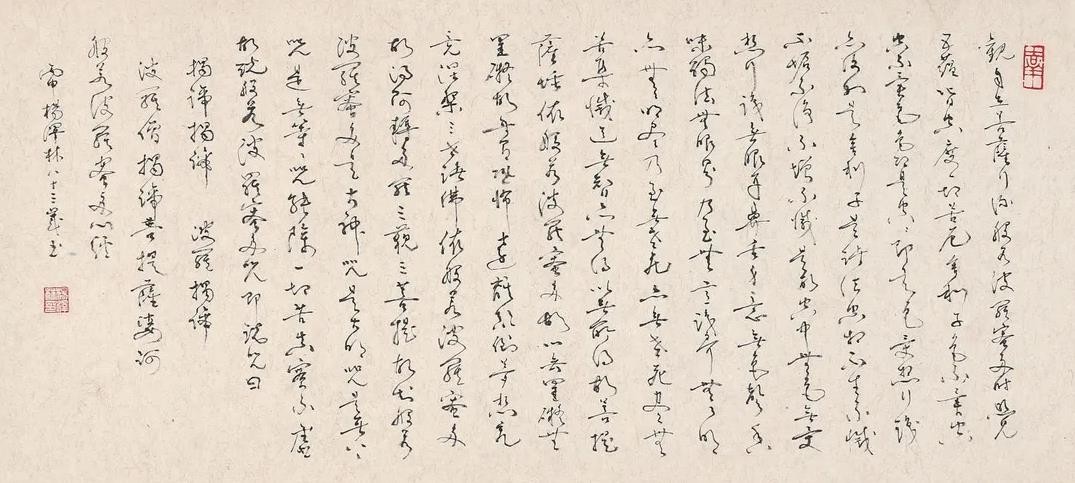 觀自在菩薩行深般若波羅蜜多時照見
五蘊皆空度一切苦厄舍利子色不異空
空不異色色即是空空即是色受想行識
亦復如是舍利子是諸法空相不生不滅
不垢不淨不增不減是故空中無色無受
想行識無眼耳鼻舌身意無色聲香
味觸法無眼界乃至無意識界無無明
亦無無明盡乃至無老死亦無老死盡無
苦集滅道無智亦無得以無所得故菩提
薩埵依般若波羅蜜多故心無罣礙無
罣礙故無有恐怖遠離顛倒夢想究
竟涅槃三世諸佛依般若波羅蜜多
故得阿耨多羅三藐三菩提故知般若
波羅蜜多是大神咒是大明咒是無上
咒是無等等咒能除一切苦真實不虛
故說般若波羅蜜多咒即說咒曰
揭諦揭諦 波羅揭諦
波羅僧揭諦菩提薩婆訶
般若波羅蜜多心經
八十三